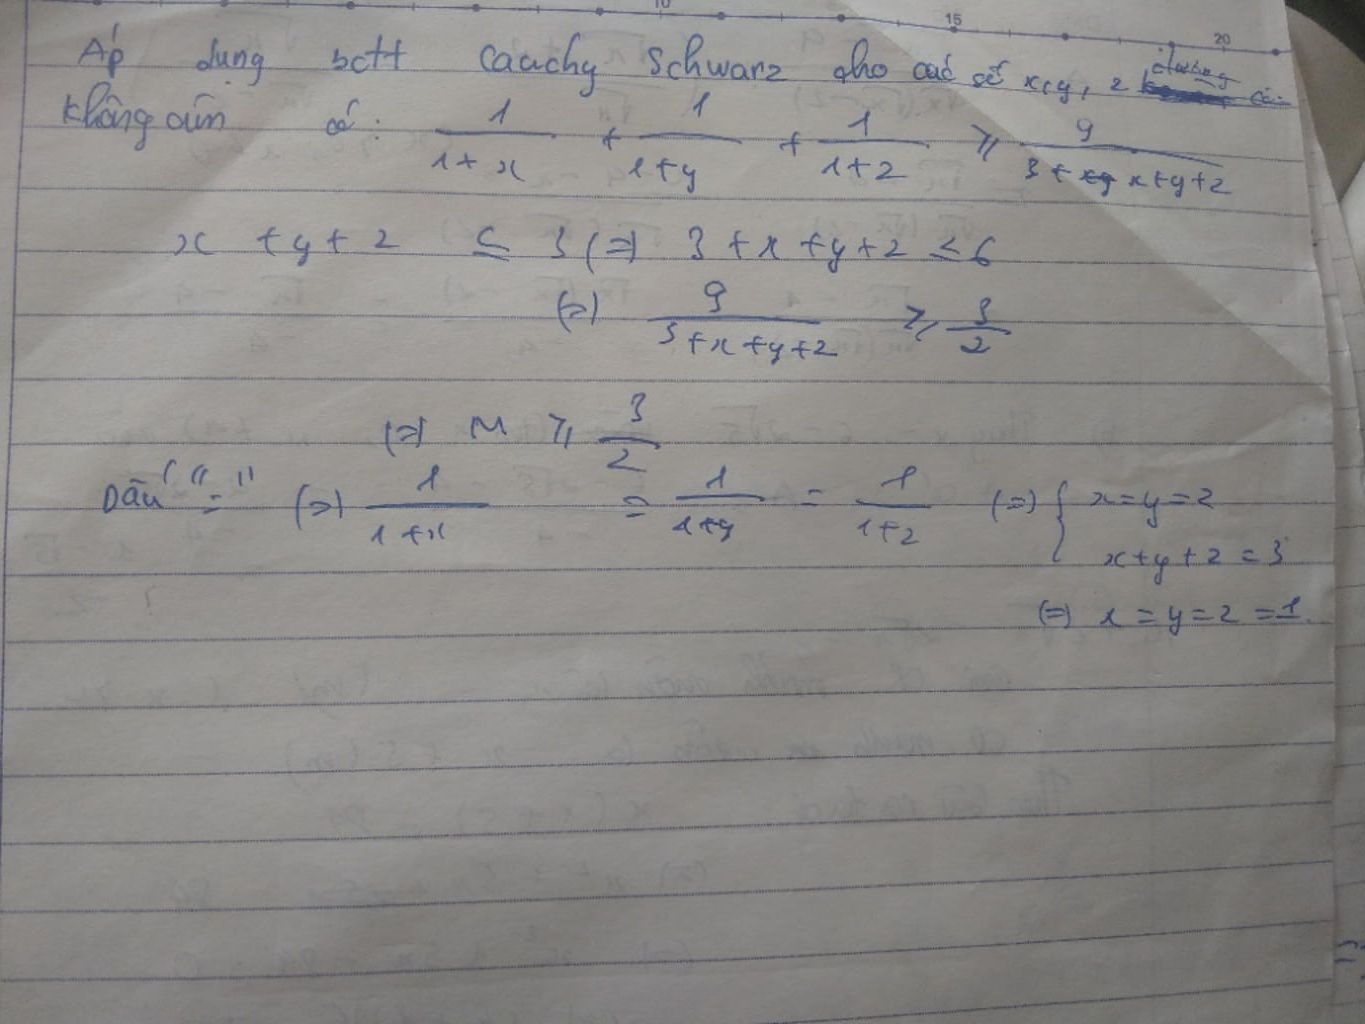 10 15 20
Áp dụng bđtt Cauchy Schwarz cho các số x, y, z dương
không âm có: 1/(1+x) + 1/(1+y) + 1/(1+z) ≥ 9/(3+x+y+z)
x + y + z ≤ 3 (=) 3 + x + y + z ≤ 6
(=) 9/(3+x+y+z) ≥ 3/2
(=) M ≥ 3/2
Dấu "=" (=) 1/(1+x) = 1/(1+y) = 1/(1+z) (=) { x=y=z
x+y+z=3
(=) x=y=z=1.